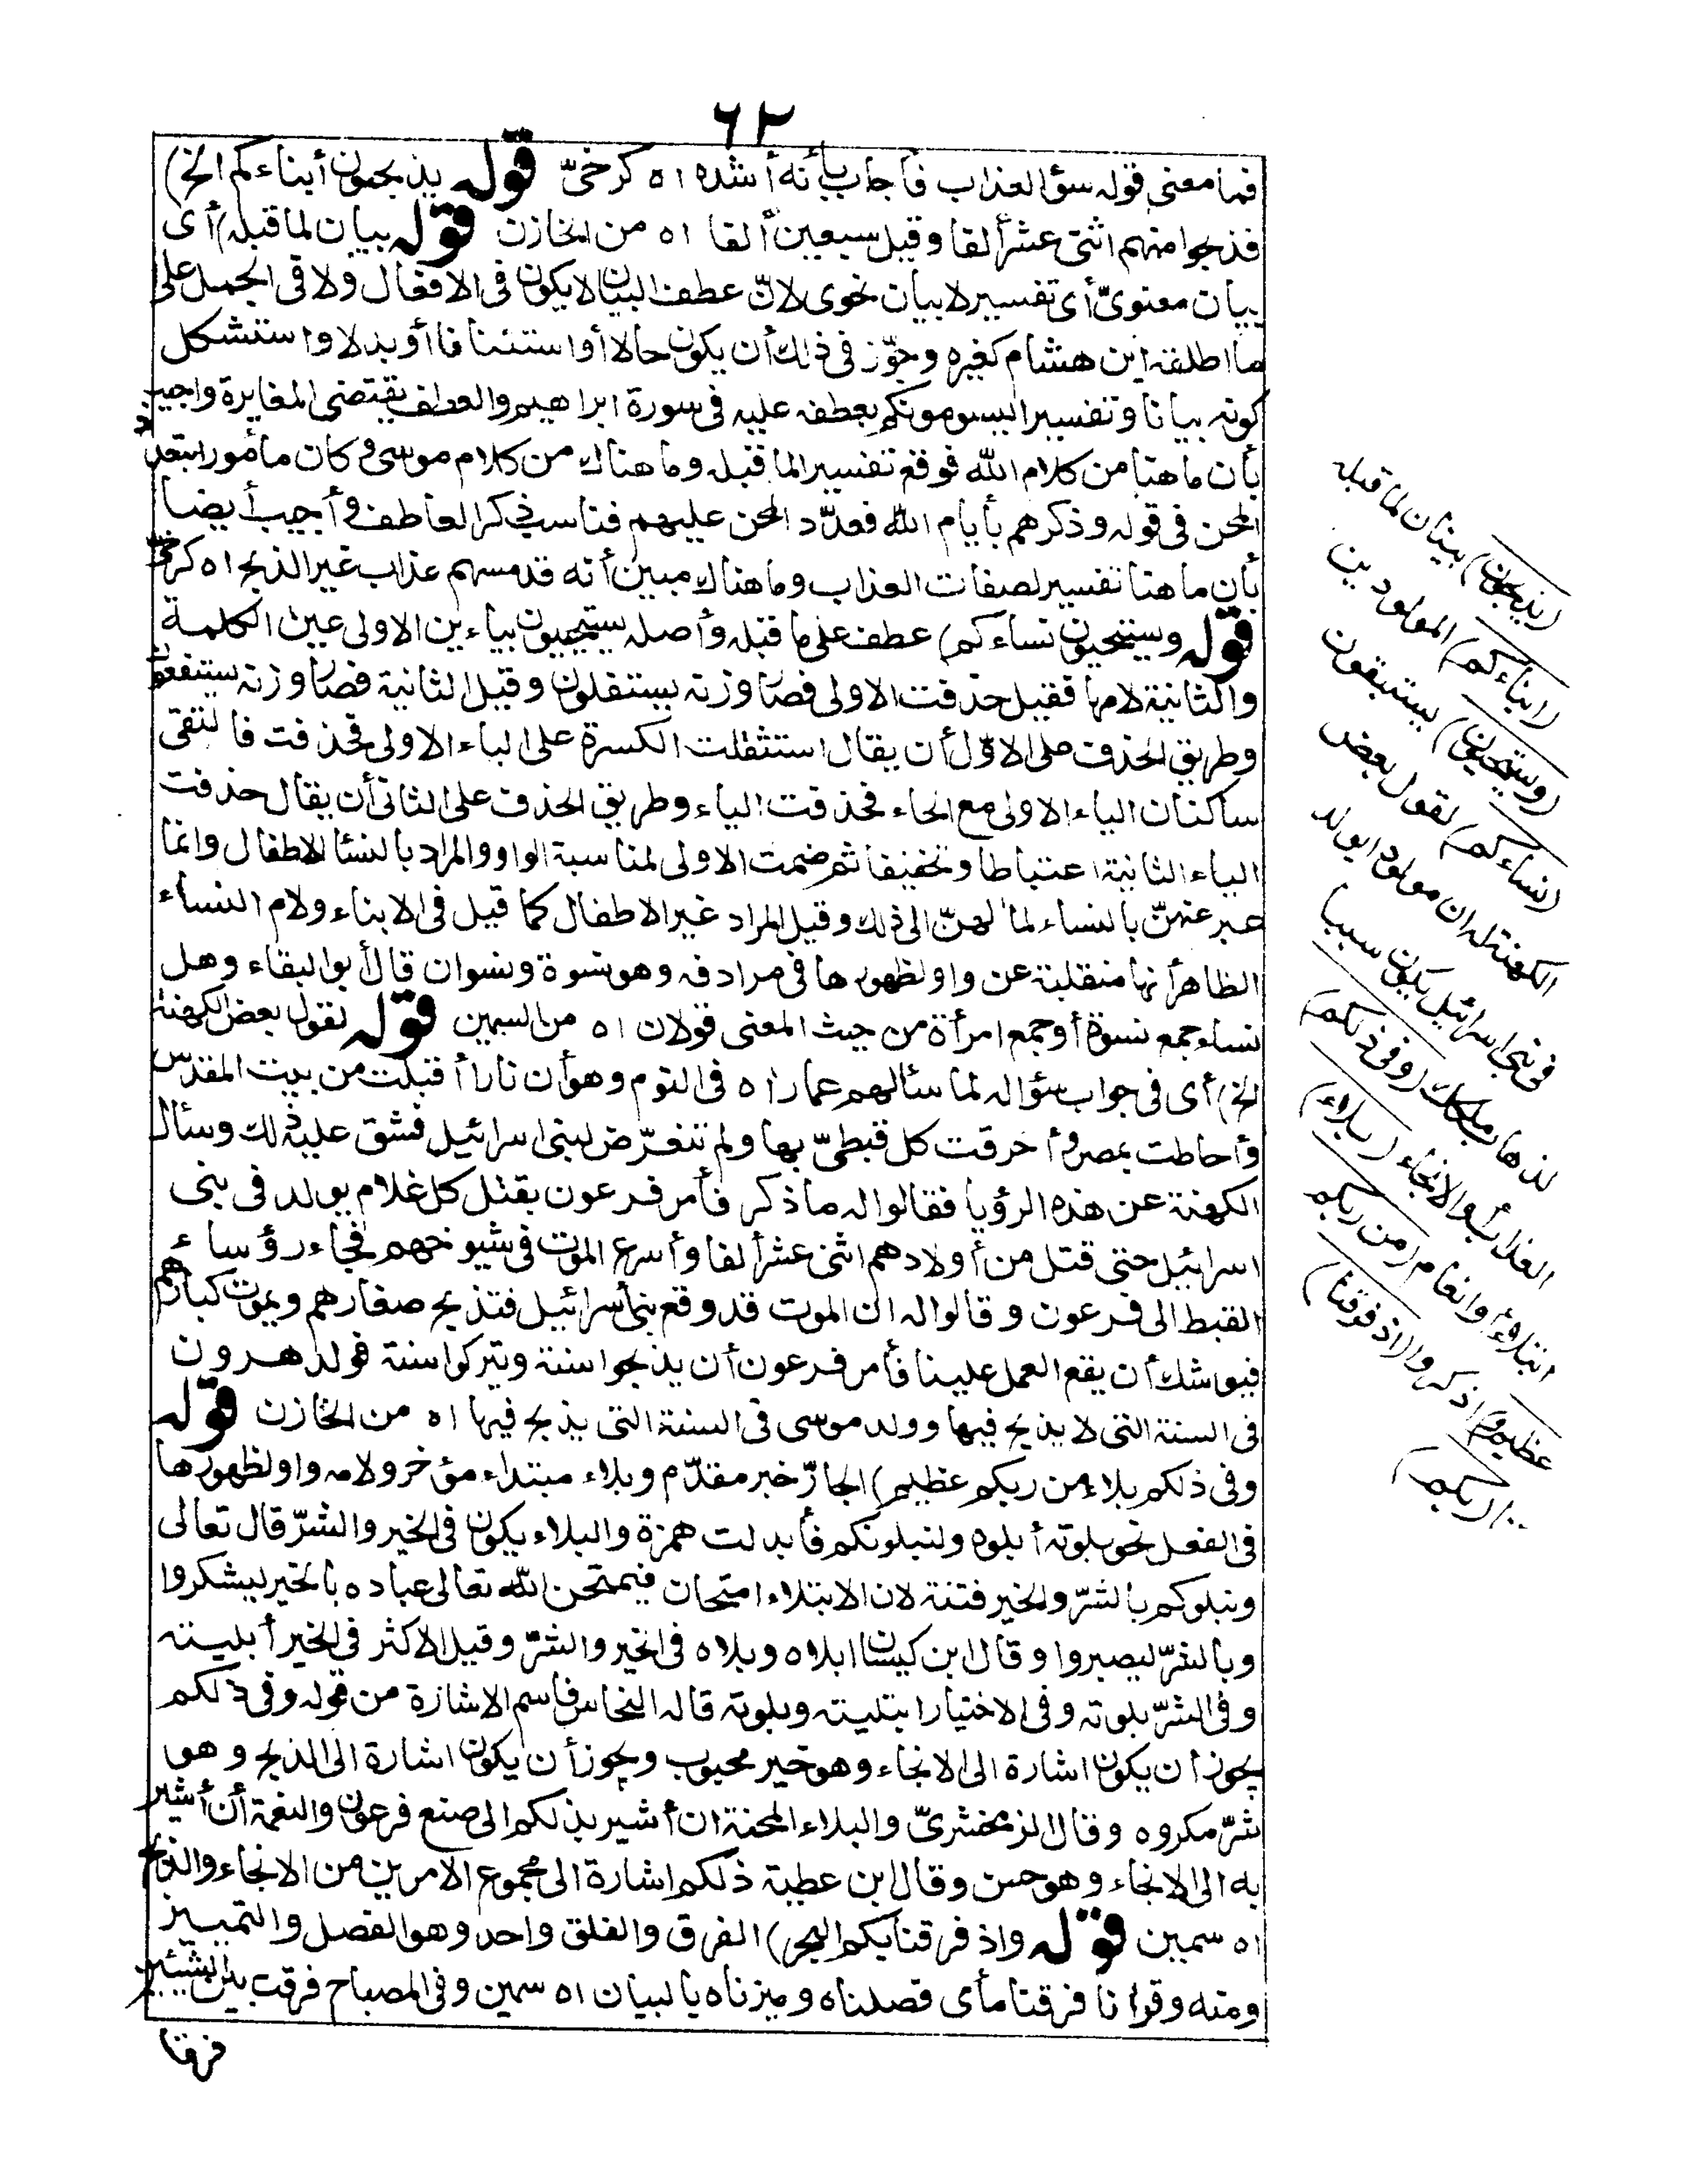 ٦٢
فما معنى قوله سوء العذاب فأجاب بأنه أشده اه كرخىّ قوله يذبحون أبناءكم الخ)
فذبحوا منهم اثنى عشر ألفا وقيل سبعين ألفا اه من الخازن قوله بيان لما قبله) أى
بيان معنوىّ أى تفسير لا بيان نحوى لانّ عطف البيان لا يكون فى الافعال ولا فى الجمل على
ما اطلقه ابن هشام كغيره وجوّز فى ذلك أن يكون حالا أو استئنافا أو بدلا واستشكل
كونه بيانا وتفسيرا ليسومونكم بعطفه عليه فى سورة ابراهيم والعطف يقتضى المغايرة واجيب
بأن ما هنا من كلام الله فوقع تفسيرا لما قبله وما هناك من كلام موسى وكان مأمورا بتعداد
المحن فى قوله وذكرهم بأيام الله فعدّد المحن عليهم فناسب ذكر العاطف وأجيب أيضا
بأن ما هنا تفسير لصفات العذاب وما هناك مبين أنه قد مسهم عذاب غير الذبح اه كرخىّ
قوله ويستحيون نساءكم) عطف على ما قبله وأصله يستحييون بياءين الاولى عين الكلمة
والثانية لامها فقيل حذفت الاولى فصار وزنه يستفلون وقيل الثانية فصار وزنه يستفعون
وطريق الحذف على الاوّل أن يقال استثقلت الكسرة على الياء الاولى فحذفت فالتقى
ساكنان الياء الاولى مع الحاء فحذفت الياء وطريق الحذف على الثانى أن يقال حذفت
الياء الثانية اعتباطا وتخفيفا ثم ضمت الاولى لمناسبة الواو والمراد بالنساء الاطفال وانما
عبر عنهنّ بالنساء لمآلهنّ الى ذلك وقيل المراد غير الاطفال كما قيل فى الابناء ولام النساء
الظاهر أنها منقلبة عن واو لظهورها فى مرادفه وهو نسوة ونسوان قال أبو البقاء وهل
نساء جمع نسوة أو جمع امرأة من حيث المعنى قولان اه من السمين قوله لقول بعض الكهنة
الخ) أى فى جواب سؤاله لما سألهم عما رآه فى النوم وهو أن نارا أقبلت من بيت المقدس
وأحاطت بمصر وأحرقت كل قبطىّ بها ولم تتعرّض لبنى اسرائيل فشق عليه ذلك وسأل
الكهنة عن هذه الرؤيا فقالوا له ما ذكر فأمر فرعون بقتل كل غلام يولد فى بنى
اسرائيل حتى قتل من أولادهم اثنى عشر ألفا وأسرع الموت فى شيوخهم فجاء رؤساء
القبط الى فرعون وقالوا له ان الموت قد وقع ببنى اسرائيل فتذبح صغارهم ويموت كبارهم
فيوشك أن يقع العمل علينا فأمر فرعون أن يذبحوا سنة ويتركوا سنة فولد هرون
فى السنة التى لا يذبح فيها وولد موسى فى السنة التى يذبح فيها اه من الخازن قوله
وفى ذلكم بلاء من ربكم عظيم) الجارّ خبر مقدّم وبلاء مبتداء مؤخر ولامه واو لظهورها
فى الفعل نحو بلوته أبلوه ولنبلونكم فأبدلت همزة والبلاء يكون فى الخير والشرّ قال تعالى
ونبلوكم بالشرّ والخير فتنة لان الابتلاء امتحان فيمتحن الله تعالى عباده بالخير ليشكروا
وبالشرّ ليصبروا وقال ابن كيسان ابلاه وبلاه فى الخير والشرّ وقيل الاكثر فى الخير أبليته
وفى الشرّ بلوته وفى الاختبار ابتليته وبلوته قاله النحاس فاسم الاشارة من قوله وفى ذلكم
يجوز أن يكون اشارة الى الانجاء وهو خير محبوب ويجوز أن يكون اشارة الى الذبح وهو
شرّ مكروه وقال الزمخشرىّ والبلاء المحنة ان أشير بذلكم الى صنع فرعون والنعمة أن أشير
به الى الانجاء وهو حسن وقال ابن عطية ذلكم اشارة الى مجموع الامرين من الانجاء والذبح
اه سمين قوله واذ فرقنا بكم البحر) الفرق والفلق واحد وهو الفصل والتمييز
ومنه وقرآنا فرقناه أى فصلناه وميزناه بالبيان اه سمين وفى المصباح فرقت بين الشيئين
فرقا
(يذبحون) بيان لما قبله
(ابناءكم) المولودين
(ويستحيون) يستبقون
(نساءكم) لقول بعض
الكهنة له ان مولودا يولد
فى بنى اسرائيل يكون سببا
لذهاب ملكك (وفى ذلكم)
العذاب أو الانجاء (بلاء)
ابتلاء أو انعام (من ربكم
عظيم و) اذكروا (اذ فرقنا)
(بكم)